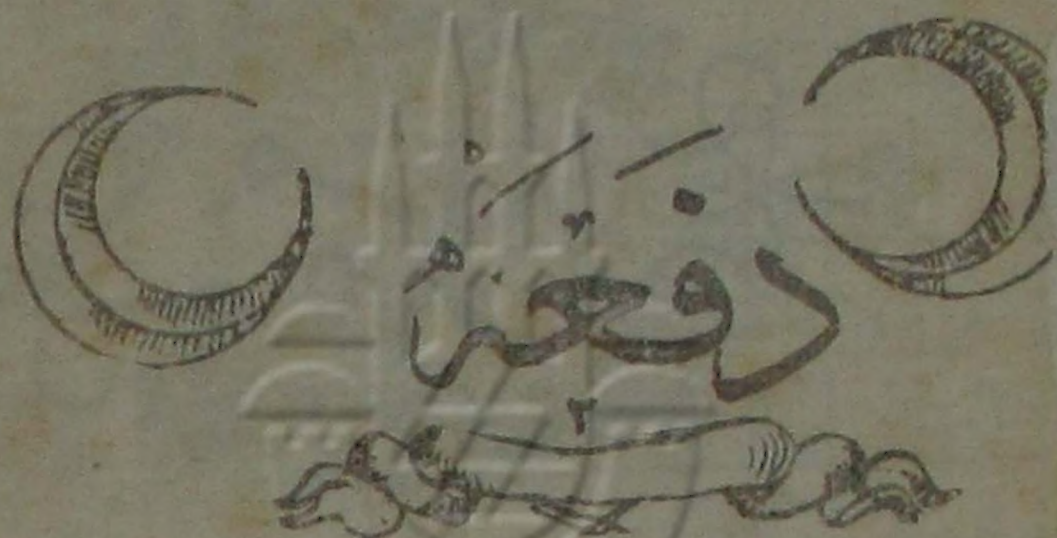 دفعنه
٢